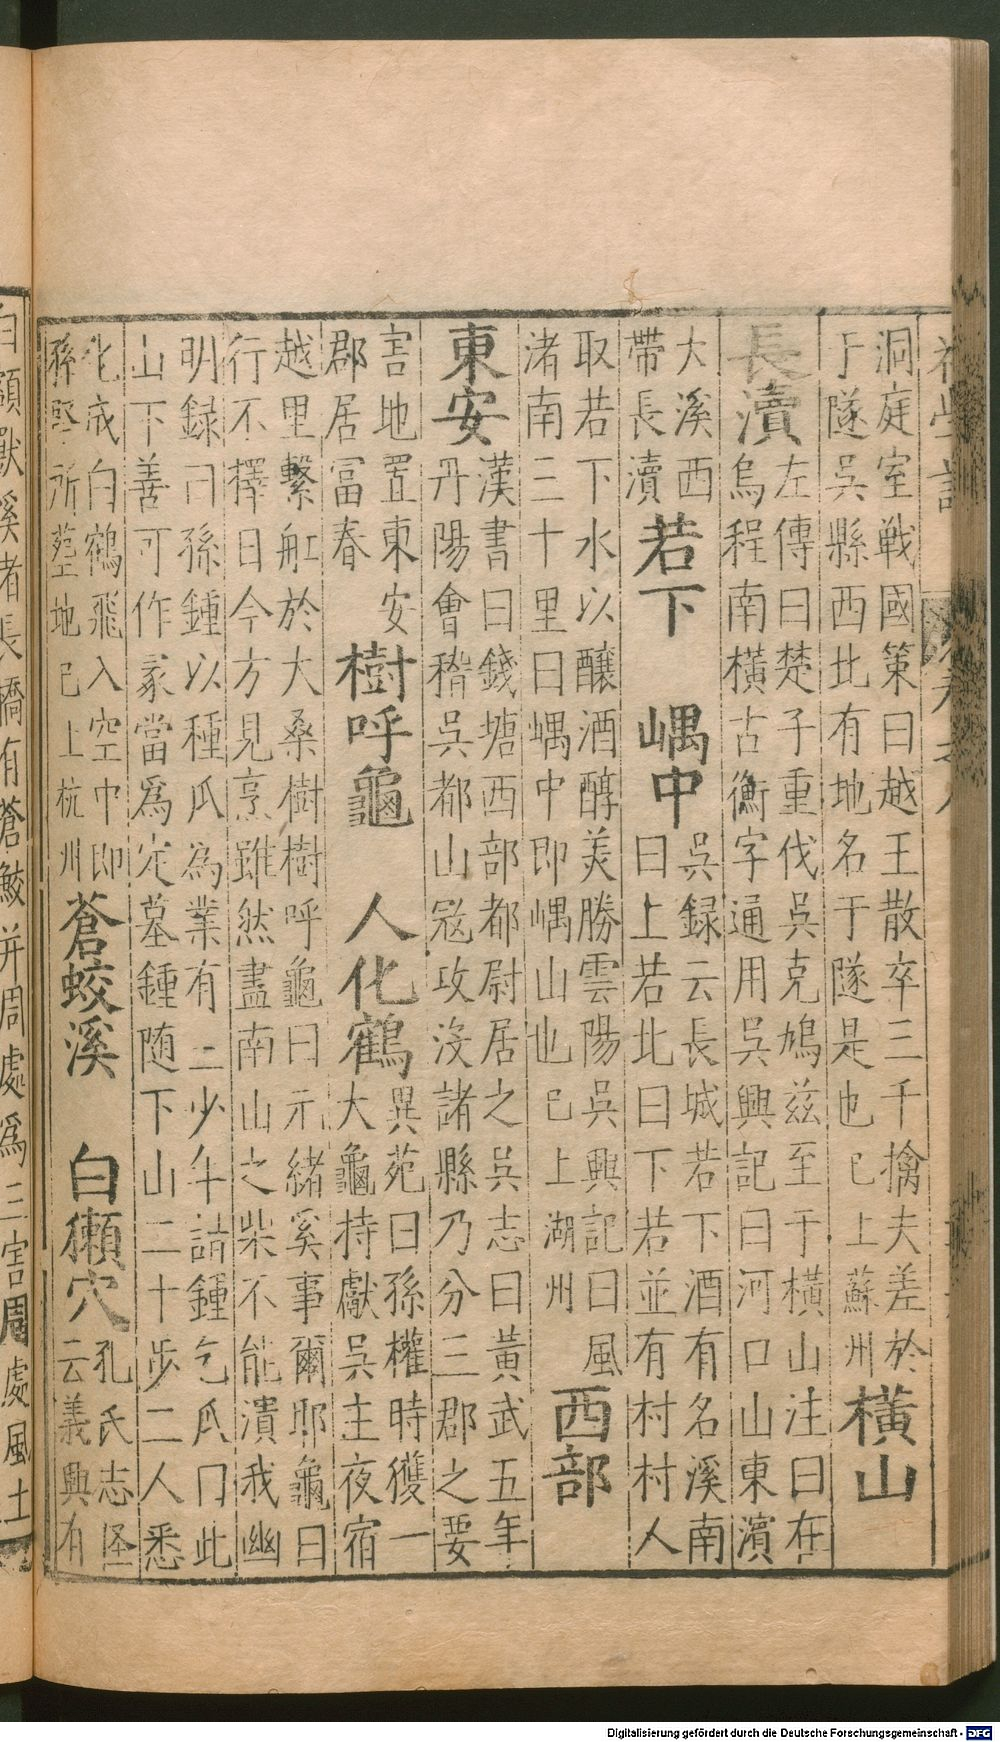 洞庭室戰國策曰越王散卒三千擒夫差於
于隧吳縣西北有地名干隧是也已上蘇州
橫山
長瀆
左傳曰楚子重伐吳克鳩茲至于橫山注曰在
烏程南橫古衡字通用吳興記曰河口山東濱
大溪西
帶長瀆
若下 嵎中
吳録云長城若下酒有名溪南
曰上若北曰下若並有村村人
取若下水以釀酒醇美勝雲陽吳興記曰風
渚南三十里曰嵎中即嵎山也已上湖州
西部
東安
漢書曰錢塘西部都尉居之吳志曰黃武五年
丹陽會稽吳都山寇攻沒諸縣乃分三郡之要
害地置東安
郡居富春
樹呼龜 人化鶴
異苑曰孫權時獲一
大龜持獻吳主夜宿
越里繫舡於大桑樹樹呼龜曰元緒奚事爾耶龜曰
行不擇日今方見烹雖然盡南山之柴不能潰我幽
明録曰孫鍾以種瓜為業有二少年詣鍾乞瓜曰此
山下善可作冢當爲定墓鍾随下山二十步二人悉
化成白鶴飛入空中即
孫堅所葬地已上杭州
蒼蛟溪 白獺穴
孔氏志怪
云義興有
白額獸溪渚長橋有蒼鮫并周處爲三害周處風土
Digitalisierung gefördert durch die Deutsche Forschungsgemeinschaft - DFG